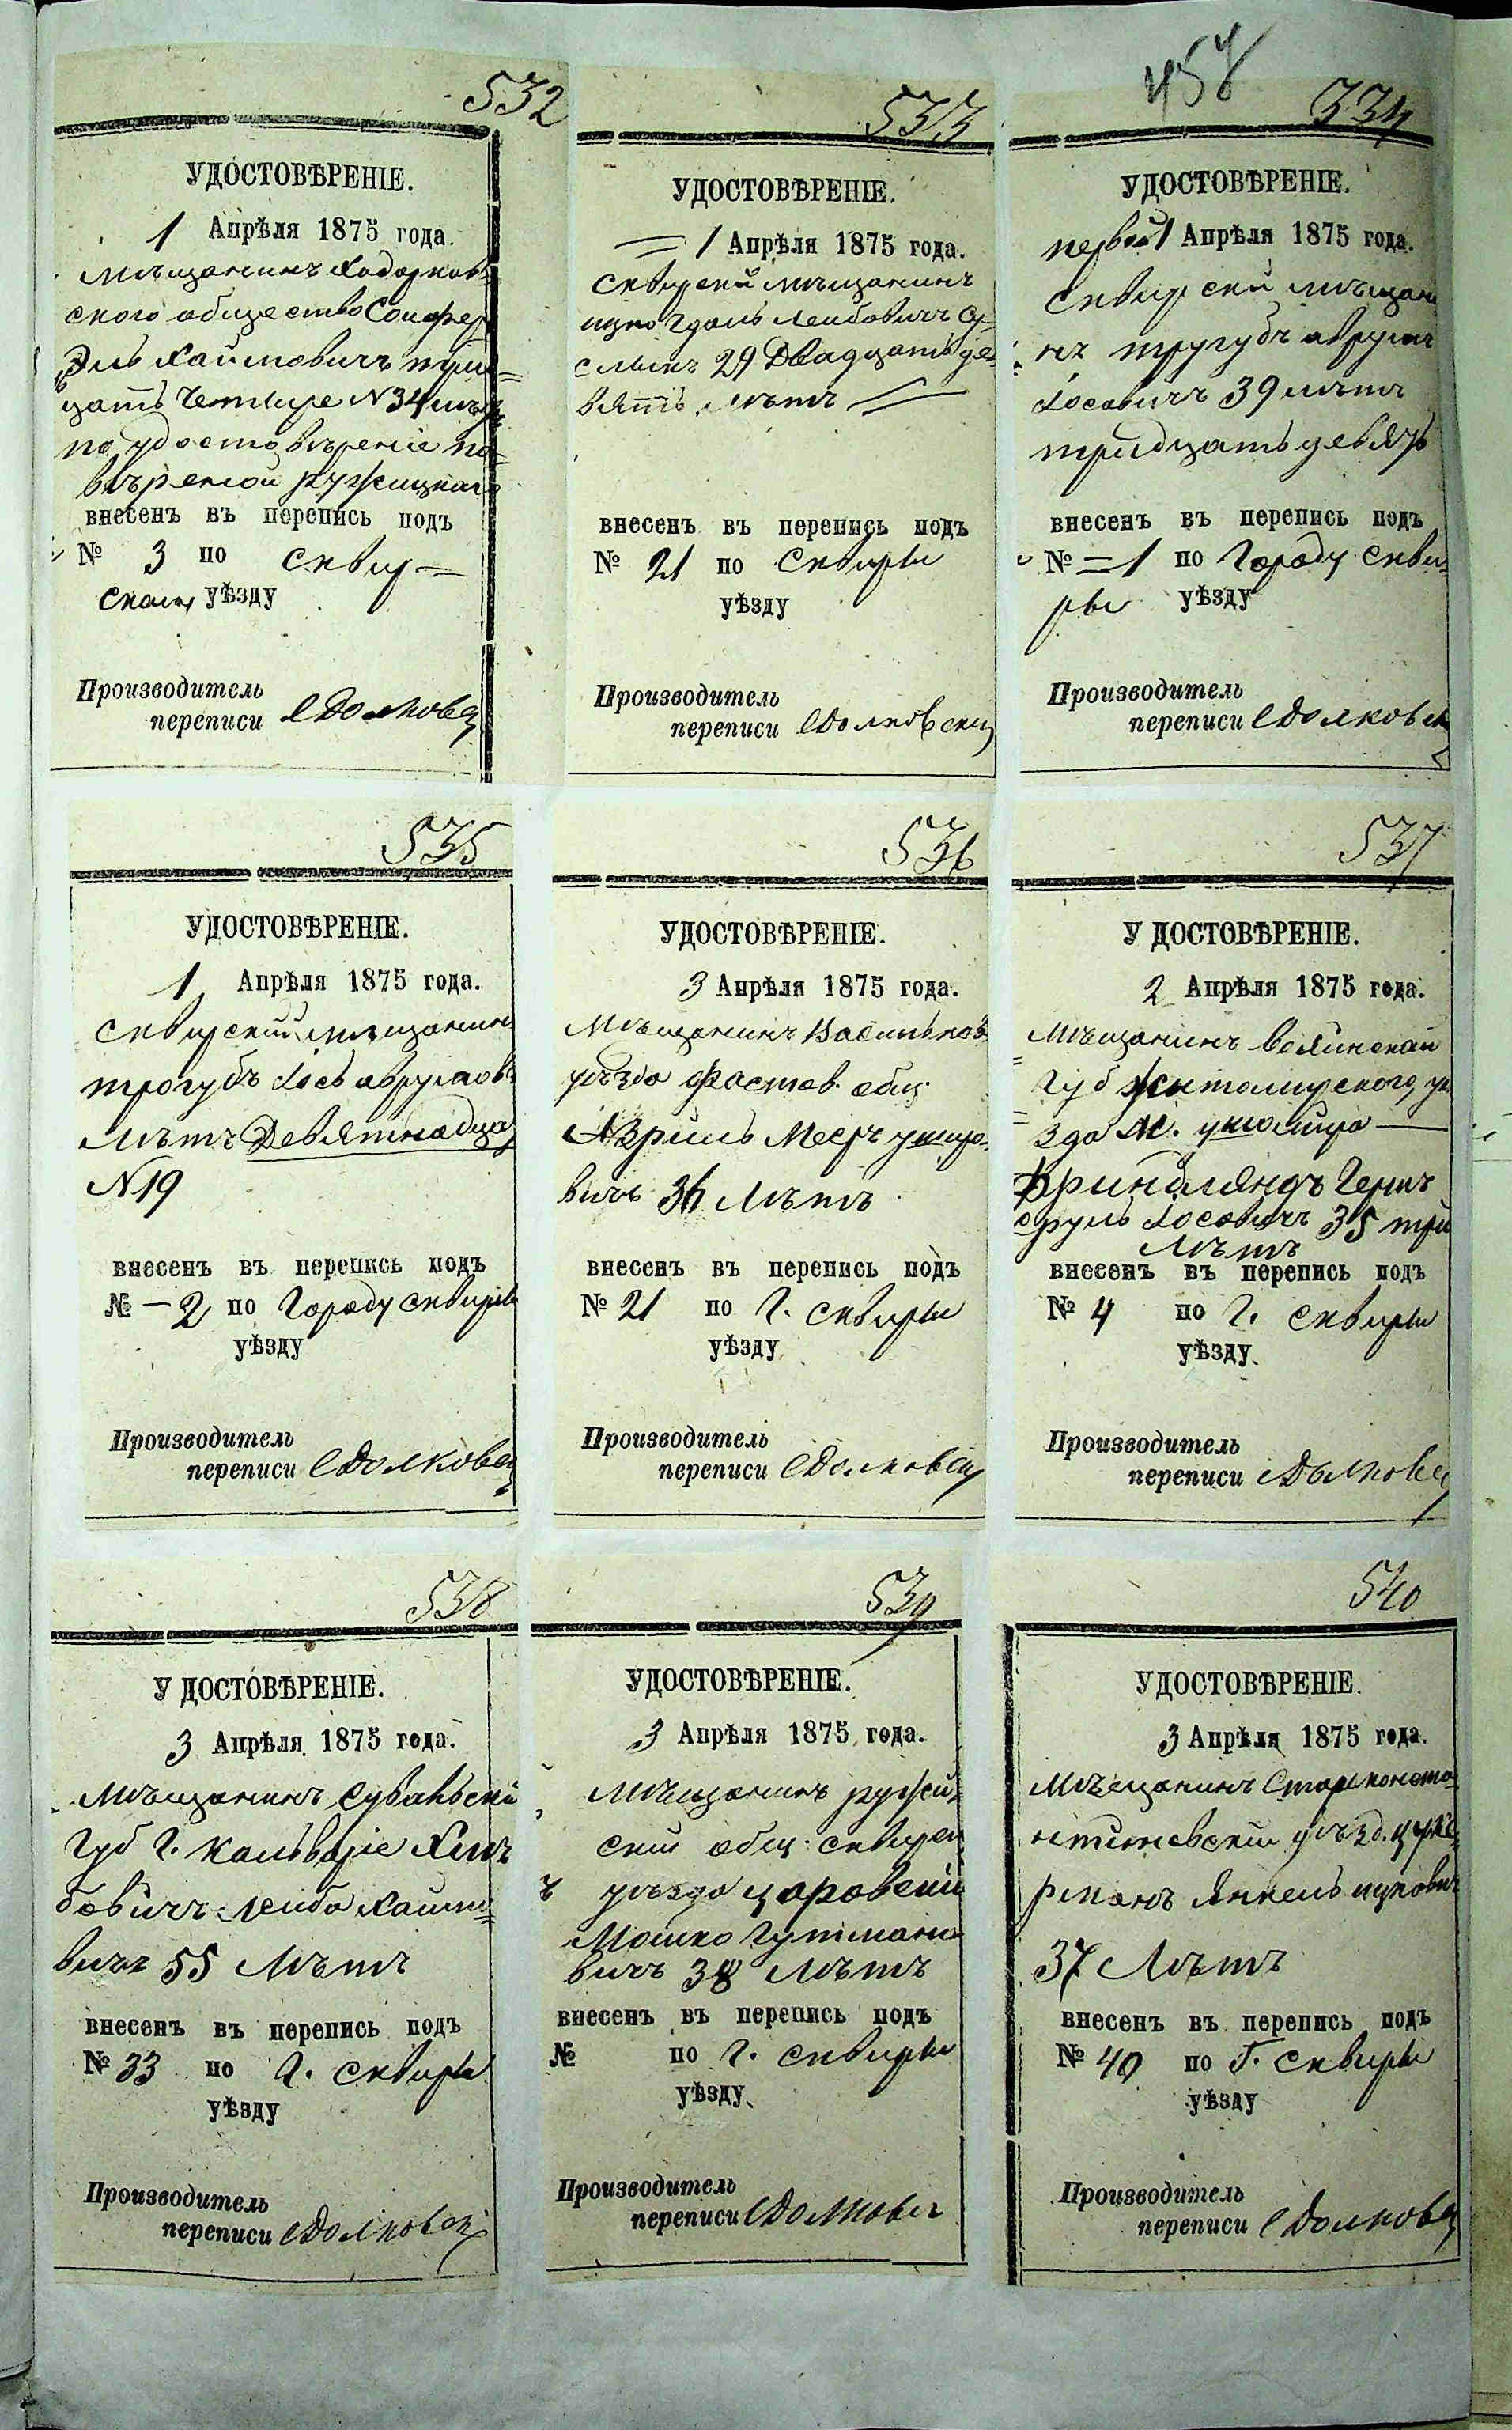 458
532
УДОСТОВѢРЕНІЕ.
1 Апрѣля 1875 года.
Мѣщанинъ Ходорков=
ского общество
Эль Хаимовичъ трид=
цать Четыре №34 лѣтъ
по удостовѣреніе по=
вѣреной Ружицкаго
внесенъ въ перепись подъ
№ 3 по Сквир=
скому уѣзду
Производитель
переписи
533
УДОСТОВѢРЕНІЕ.
= 1 Апрѣля 1875 года.
Сквирский мѣщанинъ
Лейбовичъ
29 Двадцать де=
вять лѣтъ =
внесенъ въ перепись подъ
№ 21 по Сквиры
уѣзду
Производитель
переписи Долковский
334
УДОСТОВѢРЕНІЕ.
первой 1 Апрѣля 1875 года.
Сквирский мѣщани
нъ тругубъ аврумъ
Іосовичъ 39 лѣтъ
тридцать девять
внесенъ въ перепись подъ
№ = 1 по Городу Скви=
ры уѣзду
Производитель
переписи
535
УДОСТОВѢРЕНІЕ.
1 Апрѣля 1875 года.
Сквирский мѣщанинъ
трогубъ Іось аврумов
лѣтъ Девятнадца
№19
внесенъ въ перепись подъ
№ – 2 по Городу Сквиры
уѣзду
Производитель
переписи
536
УДОСТОВѢРЕНІЕ.
3 Апрѣля 1875 года.
Мѣщанинъ Васильков
уѣзда Фастов. общ.
Азриль Меєръ
вичъ 36 лѣтъ
внесенъ въ перепись подъ
№ 21 по Г. Сквиры
уѣзду
Производитель
переписи
537
У ДОСТОВѢРЕНІЕ.
2 Апрѣля 1875 года.
Мѣщанинъ Волинской
Губ Житомирского уѣ
зда М. ушомира
Фриндляндъ Гершъ
сруль Іосовичъ 35 три
лѣтъ
внесенъ въ перепись подъ
№ 4 по Г. Сквиры
уѣзду
Производитель
переписи
538
У ДОСТОВѢРЕНІЕ.
3 Апрѣля 1875 года.
Мѣщанинъ Сувальский
Губ Г. Кальваріе
бовичъ Лейба Хаимо=
вичъ 55 лѣтъ
внесенъ въ перепись подъ
№ 33 по Г. Сквиры
уѣзду
Производитель
переписи
539
УДОСТОВѢРЕНІЕ.
3 Апрѣля 1875 года.
Мѣщанинъ ружин
ский общ. сквирск
уѣзда царовский
Мошко Гутмано
вичъ 38 лѣтъ
внесенъ въ перепись подъ
№ по Г. Сквиры
уѣзду
Производитель
переписи
540
УДОСТОВѢРЕНІЕ.
3 Апрѣля 1875 года.
Мѣщанинъ Староконста
нтиновский уѣзд. цуке
рманъ Янкель ицкович
37 лѣтъ
внесенъ въ перепись подъ
№ 40 по Г. Сквиры
уѣзду
Производитель
переписи